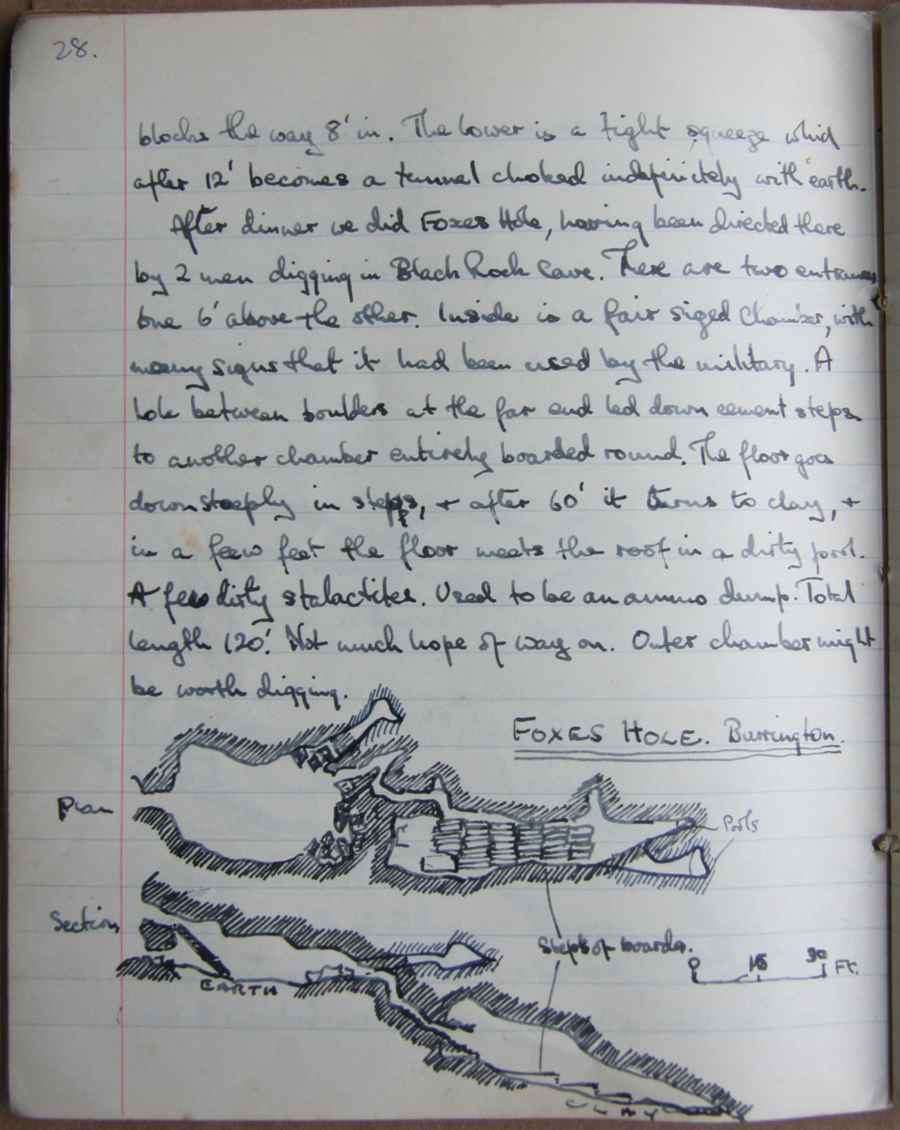 28.
blocks the way 8' in. The lower is a tight squeeze which
after 12' becomes a tunnel choked indefinitely with earth.
After dinner we did Foxes Hole, having been directed there
by 2 men digging in Black Rock Cave. There are two entrances
one 6' above the other. Inside is a fair sized chamber, with
many signs that it had been used by the military. A
hole between boulders at the far end led down cement steps
to another chamber entirely boarded round. The floor goes
down steeply in steps, + after 60' it turns to clay, +
in a few feet the floor meets the roof in a dirty pool.
A few dirty stalactites. Used to be an ammo dump. Total
length 120'. Not much hope of way on. Outer chamber might
be worth digging.
FOXES HOLE. Burrington.
Plan
Pools
Section
Steps of boards.
EARTH
0 15 30 FT.
CLAY